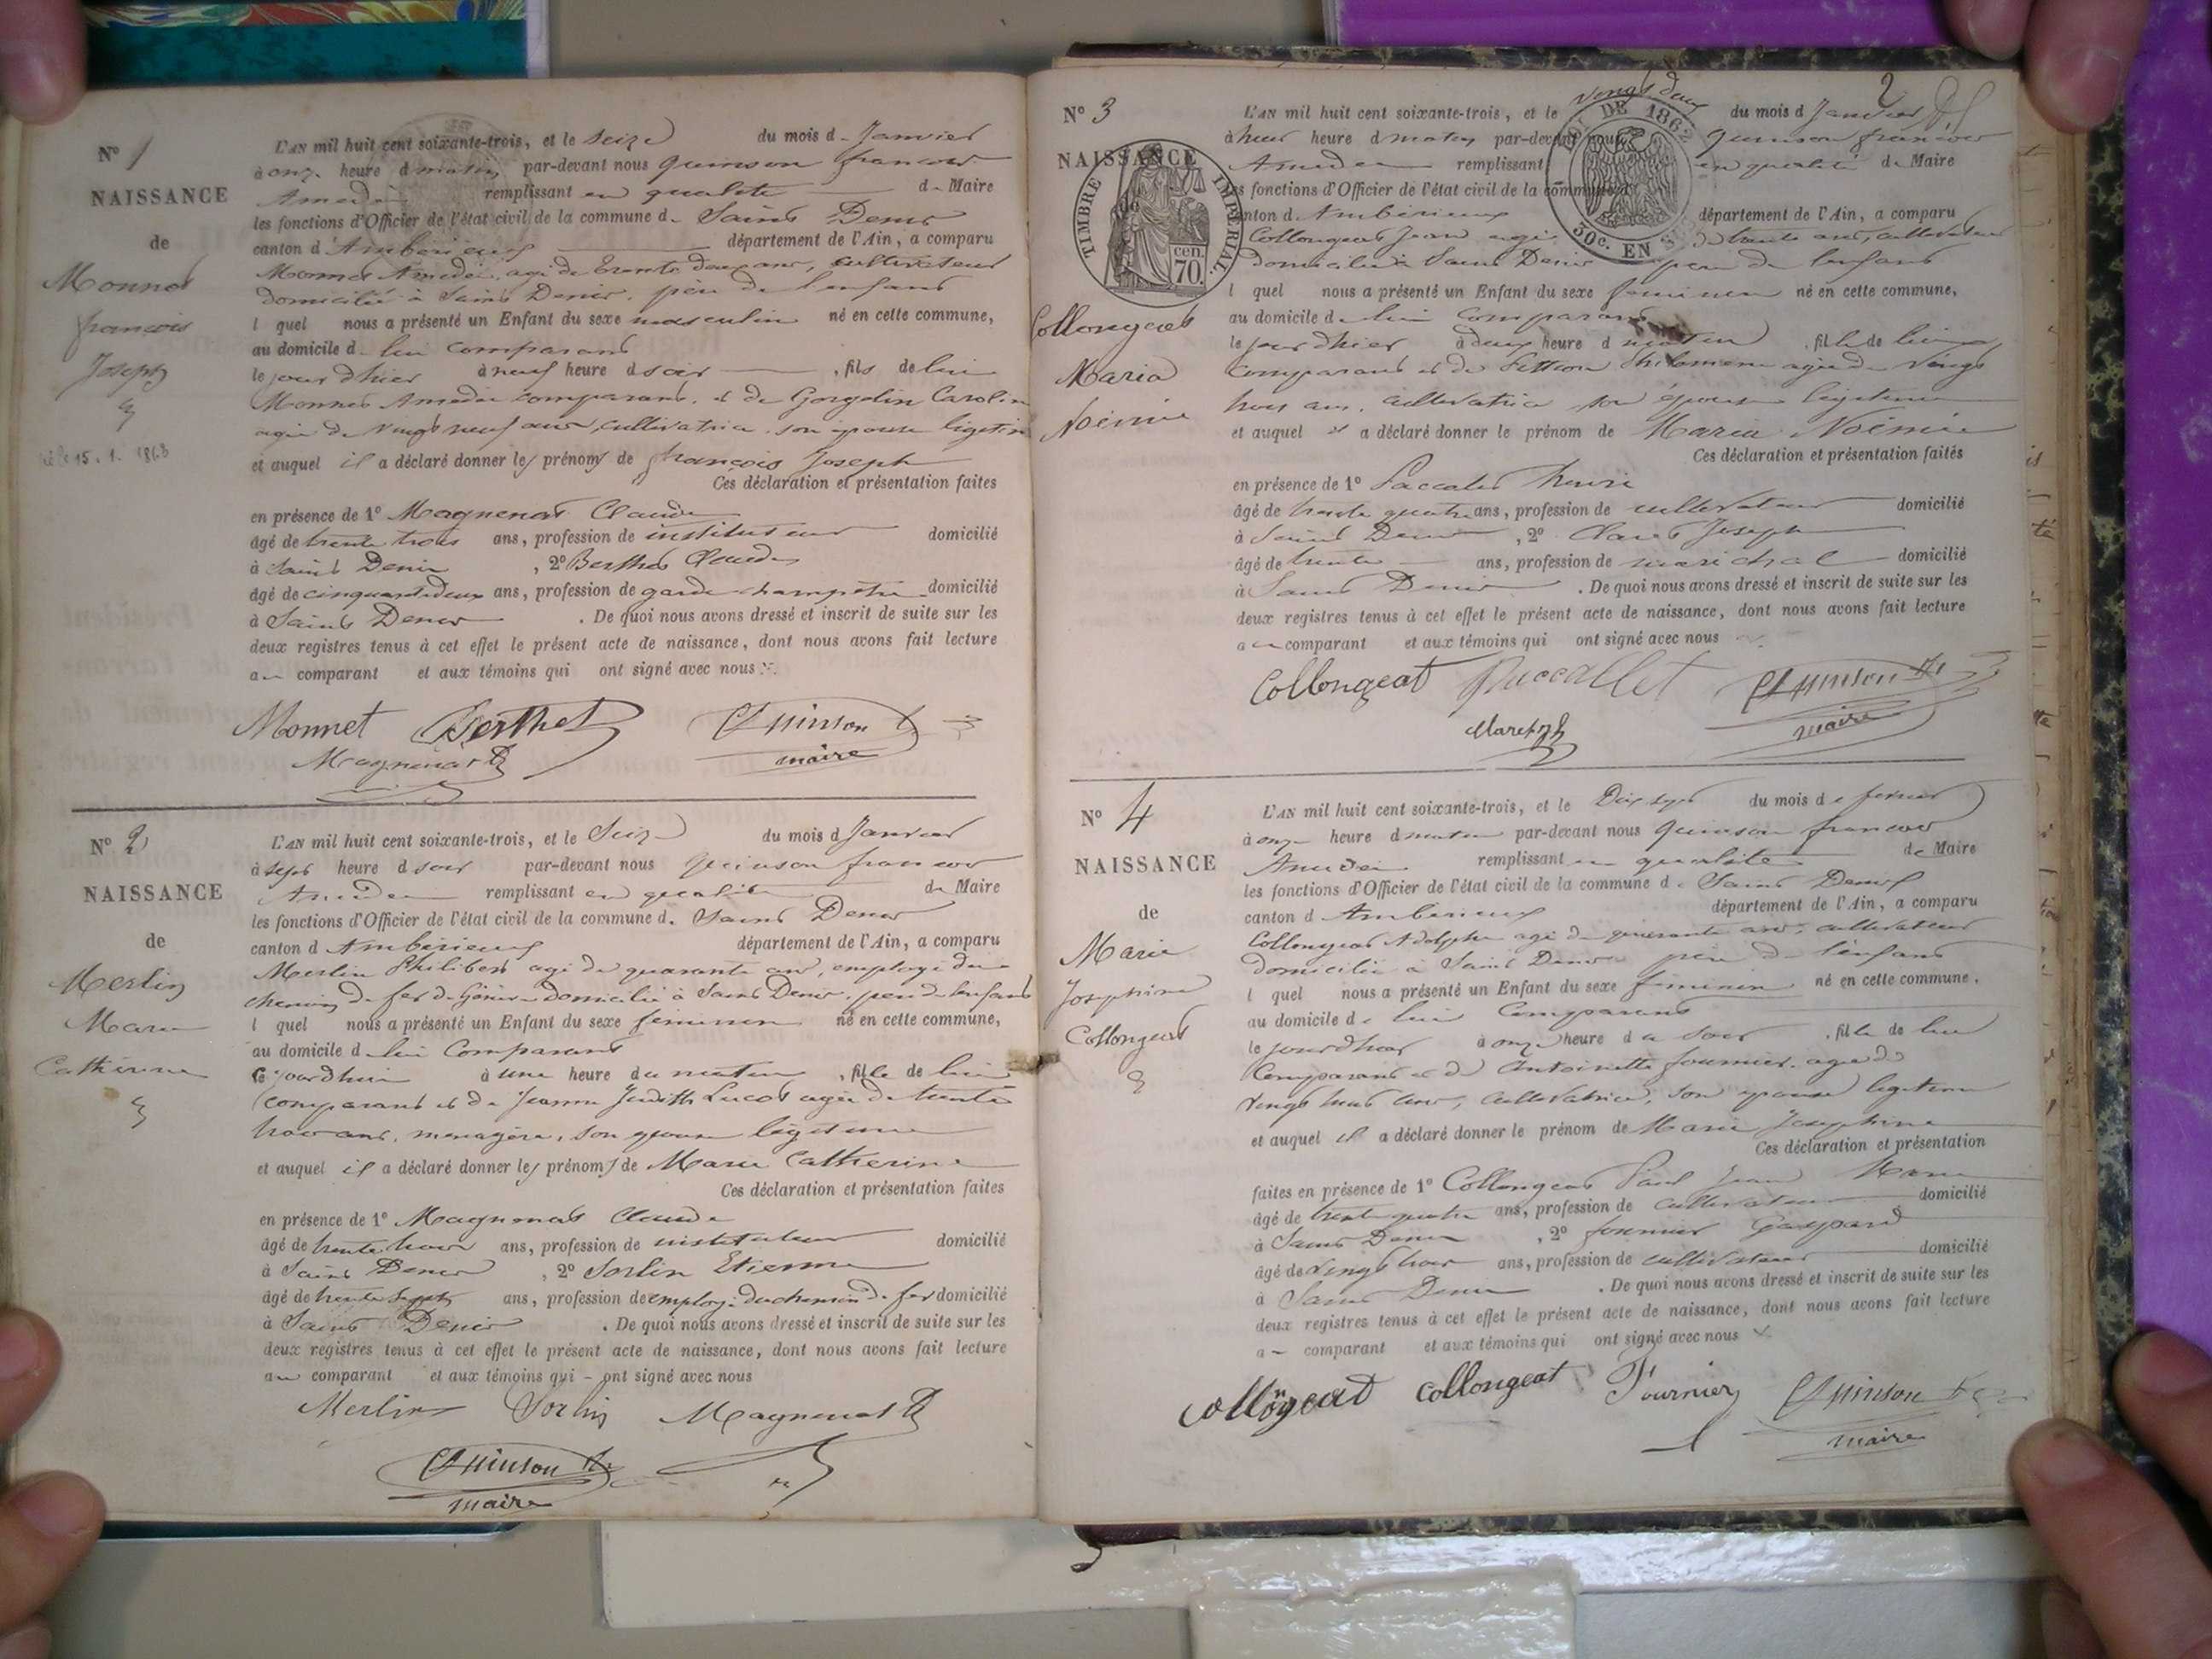 N° 1
NAISSANCE
de
Monnet
françois
Joseph
né le 15. 1. 1863
L'AN mil huit cent soixante-trois, et le seize du mois d Janvier
à onze heure d matin par-devant nous Quinson françois
Amedée remplissant en qualité de Maire
les fonctions d'Officier de l'état civil de la commune de Saint Denis
canton d'Ambérieux département de l'Ain, a comparu
Monnet Amedée, agé de trente deux ans, cultivateur
domicilié à Saint Denis, père de l'enfant
l quel nous a présenté un Enfant du sexe masculin né en cette commune,
au domicile de lui comparant
le jour d'hier à neuf heure d soir , fils de lui
Monnet Amedée comparant, et de Gorgelin Caroline
agée de Vingt neuf ans, cultivatrice, son épouse légitime
et auquel il a déclaré donner les prénoms de françois Joseph
Ces déclaration et présentation faites
en présence de 1° Magnenat Claude
âgé de trente trois ans, profession de instituteur domicilié
à Saint Denis , 2° Berthet Claude
âgé de cinquante deux ans, profession de garde champetre domicilié
à Saint Denis . De quoi nous avons dressé et inscrit de suite sur les
deux registres tenus à cet effet le présent acte de naissance, dont nous avons fait lecture
au comparant et aux témoins qui ont signé avec nous
Monnet Berthet Quinson
Magnenat maire
N° 2
NAISSANCE
de
Merlin
Marie
Catherine
L'AN mil huit cent soixante-trois, et le Seize du mois d Janvier
à sept heure d soir par-devant nous Quinson françois
Amedée remplissant en qualité de Maire
les fonctions d'Officier de l'état civil de la commune de Saint Denis
canton d Ambérieux département de l'Ain, a comparu
Merlin Philibert agé de quarante ans, employé du
chemin de fer de Génève domicilié à Saint Denis, père de l'enfant
l quel nous a présenté un Enfant du sexe féminin né en cette commune,
au domicile de lui Comparant
le jourd'hui à une heure du matin , fille de lui
comparant et de Jeanne Judith Lucot agée de trente
trois ans, menagère, son épouse légitime
et auquel il a déclaré donner les prénoms de Marie Catherine
Ces déclaration et présentation faites
en présence de 1° Magnenat Claude
âgé de trente trois ans, profession de instituteur domicilié
à Saint Denis , 2° Sorlin Etienne
âgé de trente sept ans, profession de employé du chemin de fer domicilié
à Saint Denis . De quoi nous avons dressé et inscrit de suite sur les
deux registres tenus à cet effet le présent acte de naissance, dont nous avons fait lecture
au comparant et aux témoins qui ont signé avec nous
Merlin Sorlin Magnenat
Quinson
maire
2
N° 3
NAISSANCE
TIMBRE IMPERIAL
cen. 70.
DE 1862
50c. EN
Collongeat
Maria
Noémie
L'AN mil huit cent soixante-trois, et le vingt deux du mois d Janvier
à heure d matin par-devant nous Quinson françois
Amedée remplissant en qualité de Maire
les fonctions d'Officier de l'état civil de la commune d
canton d Ambérieux département de l'Ain, a comparu
Collongeat Jean agé de trente ans, cultivateur
domicilié à Saint Denis père de l'enfant
l quel nous a présenté un Enfant du sexe féminin né en cette commune,
au domicile de lui comparant
le jour d'hier à deux heure d matin , fille de lui
comparant et de Philomène agée de Vingt
trois ans, cultivatrice son épouse légitime
et auquel il a déclaré donner le prénom de Maria Noémie
Ces déclaration et présentation faites
en présence de 1° Paccalet henri
âgé de trente quatre ans, profession de cultivateur domicilié
à Saint Denis , 2° Joseph
âgé de trente ans, profession de maréchal domicilié
à Saint Denis . De quoi nous avons dressé et inscrit de suite sur les
deux registres tenus à cet effet le présent acte de naissance, dont nous avons fait lecture
au comparant et aux témoins qui ont signé avec nous
Collongeat Paccallet Quinson
maire
N° 4
NAISSANCE
de
Marie
Josephine
Collongeat
L'AN mil huit cent soixante-trois, et le Dix sept du mois de fevrier
à onze heure d matin par-devant nous Quinson francois
Amedée remplissant en qualité de Maire
les fonctions d'Officier de l'état civil de la commune de Saint Denis
canton d Ambérieux département de l'Ain, a comparu
Collongeat Adolphe agé de quarante ans, cultivateur
domicilié à Saint Denis père de l'enfant
l quel nous a présenté un Enfant du sexe féminin né en cette commune.
au domicile de lui Comparant
le jour d'hier à onze heure du soir , fille de lui
Comparant et de Antoinette fournier, agée de
vingt huit ans, cultivatrice, son épouse légitime
et auquel il a déclaré donner le prénom de Marie Josephine
Ces déclaration et présentation
faites en présence de 1° Collongeat Paul Jean Marie
âgé de trente quatre ans, profession de cultivateur domicilié
à Saint Denis , 2° fournier Gaspard
âgé de vingt trois ans, profession de cultivateur domicilié
à Saint Denis . De quoi nous avons dressé et inscrit de suite sur les
deux registres tenus à cet effet le présent acte de naissance, dont nous avons fait lecture
au comparant et aux témoins qui ont signé avec nous
Collongeat Collongeat Fournier Quinson
maire